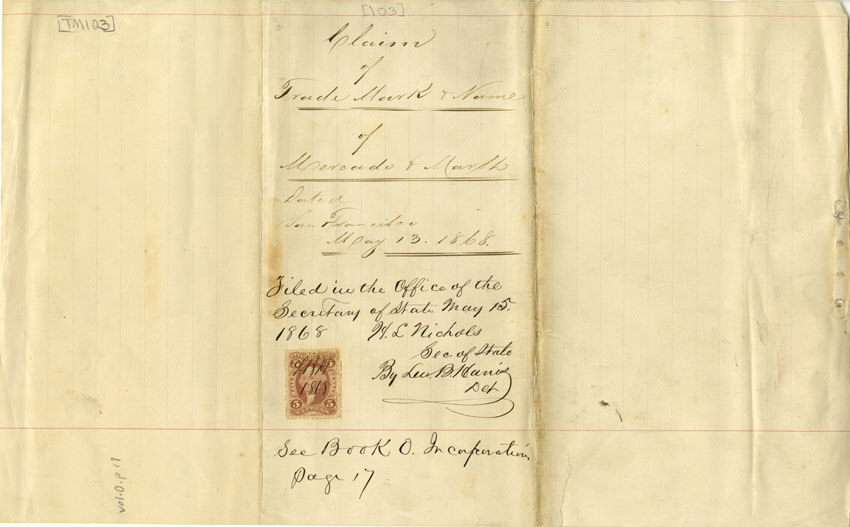 [TM103]
[103]
Claim
of
Trade Mark & Name
of
Mercado & Marsh
Dated
San Francisco
May 13. 1868.
Filed in the Office of the
Secretary of State May 15.
1868 H. L. Nichols
Sec of State
By Leo. B. Harris
Det
1868
5 5
See Book O. Incorporations
Page 17.
vol. O. p 17